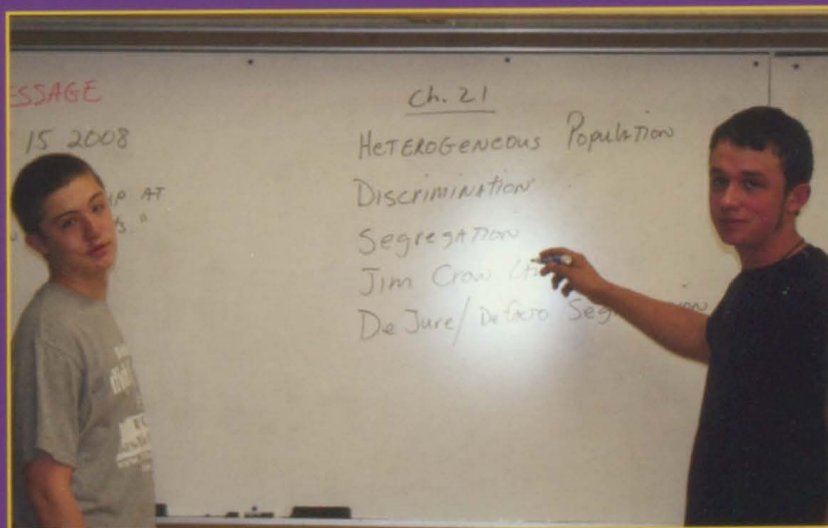 ESSAGE
15 2008
AT
Ch. 21
Heterogeneous Population
Discrimination
Segregation
Jim Crow
De Jure/ De facto